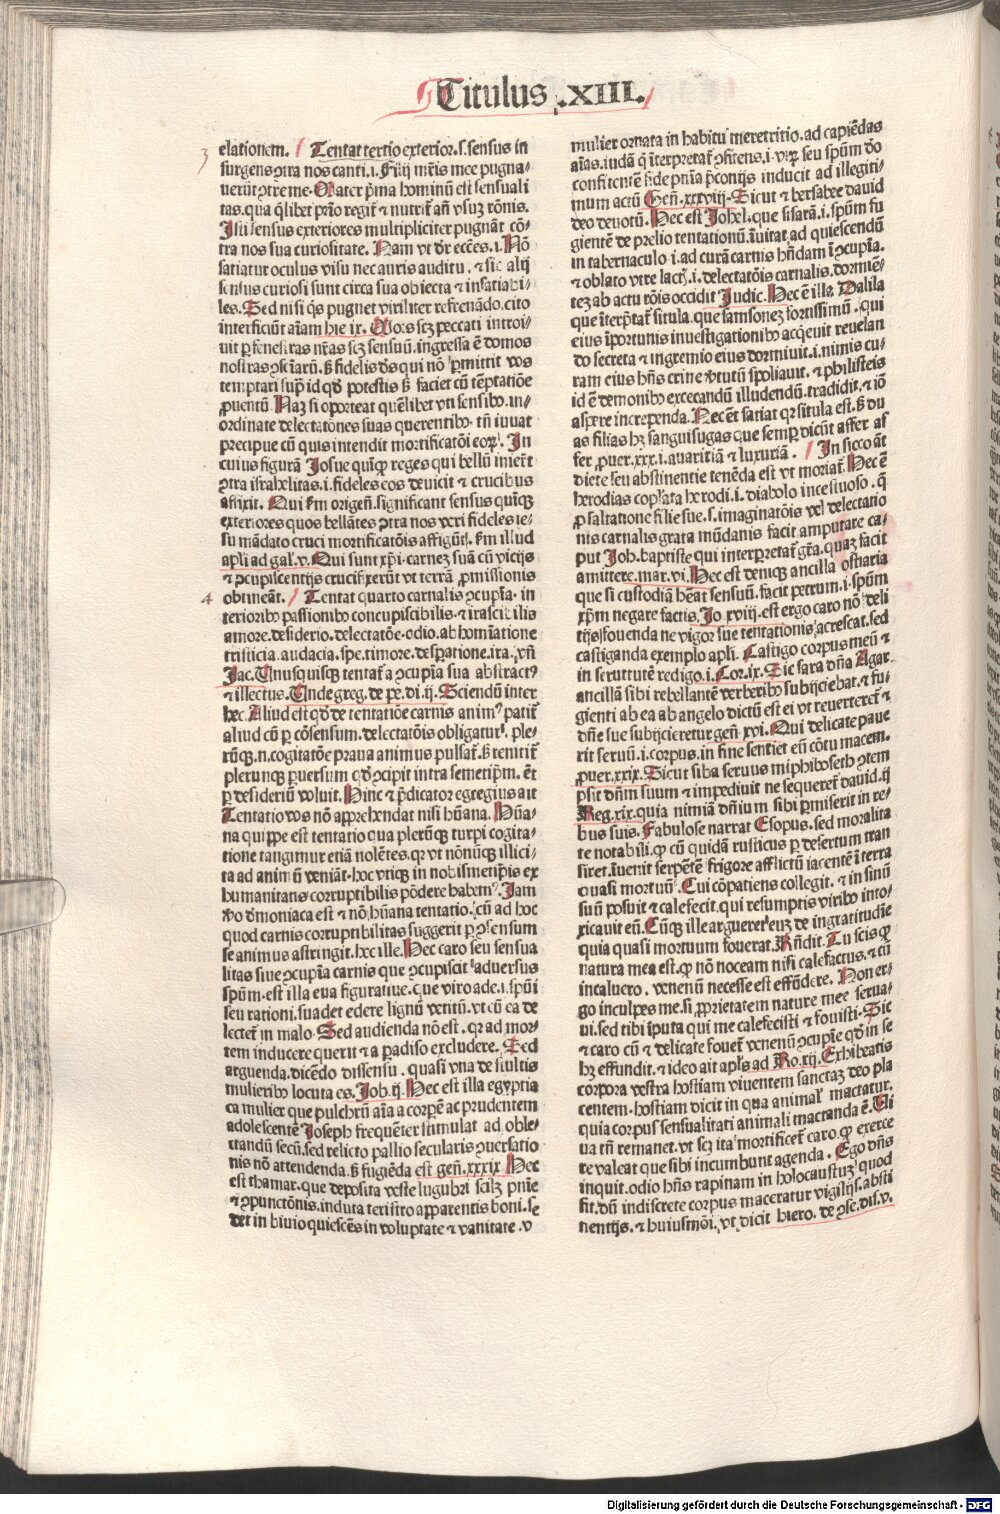 Titulus .XIII.
3
elationem. Tentat tertio exterior.s.sensus in
surgens ↄtra nos canti.i. Filij mr̄is mee pugna-
uerūt ↄtr̄e me. Mater p̄ma hominū est sensuali
tas.qua q̄libet prīo regit᷑ ⁊ nutrit᷑ an̄ vsuꝫ rōnis.
Isti sensus exteriores multipliciter pugnāt cō-
tra nos sua curiositate. Nam vt dr̄ ecc̄es.i. Nō
satiatur oculus visu nec auris auditu. ⁊ sic alij
sensus curiosi sunt circa sua obiecta ⁊ insatiabi-
les. Sed nisi q̄s pugnet viriliter refrenādo.cito
interficiūt aīam hie ix. Mors scꝫ peccati introi-
uit ꝑ fenestras nr̄as scꝫ sensuū.ingressa ē domos
nostras ↄsc̄iarū. ẞ fidelis d̄s qui nō ꝑmittit vos
temptari supͣ id qd̓ potestis ẞ faciet cū tēptatiōe
ꝓuentū Naꝫ si oporteat quēlibet vti sensibꝰ. in-
ordinate delectatōnes suas querentibꝰ. tn̄ iuuat
precipue cū quis intendit mortificatōi eoꝝ. In
cuius figurā Josue quīqꝫ reges qui bellū inierūt
ↄtra israhelitas.i.fideles eos deuicit ⁊ crucibus
affixit. Qui ẞm origen̄.significant sensus quīqꝫ
exteriores quos bellātes ↄtra nos veri fideles ie-
su mādato cruci mortificatōis affigūt. ẞm illud
apli ad gal̓.v. Qui sunt xp̄i.carneꝫ suā cū vicijs
⁊ ↄcupiscentijs crucifixerūt vt terrā ꝓmissionis
4
obtineāt. Tentat quarto carnalis ↄcupīa. in
terioribꝰ passionibꝰ concupiscibilis.⁊ irascibilis
amore.desiderio.delectatōe.odio.abhomīatione
tristicia.audacia.spe.timore.desꝑatione.ira. vn̄
Jac. Unusquisqꝫ tentat᷑ a ↄcupīa sua abstractꝰ
⁊ illectus. Unde greg.de pe.di.ij. Sciendū inter
hec. Aliud est qd̓ de tentatiōe carnis animꝰ patit᷑
aliud cū ꝑ cōsensum.delectatōis obligatur. ple-
rūqꝫ.n.cogitatōe praua animus pulsat᷑.ẞ renitit᷑
plerunqꝫ ꝑuersum qd̓ ↄcipit intra semetip̄m. ēt
ꝑ desideriū voluit. Hinc ⁊ p̄dicator egregius ait
Tentatio vos nō apprehendat nisi hūana. Hūa-
na quippe est tentatio qua plerūqꝫ turpi cogita-
tione tangimur etiā nolētes.qꝛ vt nōnūqꝫ illici-
ta ad animū veniāt.hoc vticqꝫ in nobismetip̄is ex
humanitatis corruptibilis pōdere habemꝰ. Jam
v̓o demoniaca est ⁊ nō hūana tentatio. cū ad hoc
quod carnis corruptibilitas suggerit ꝑ ↄsensum
se animus astringit.hec ille. Hec caro seu sensua
litas siue ↄcupīa carnis que ↄcupiscit aduersus
spūm.est illa eua figuratiue.que viro ade.i.spūi
seu rationi.suadet edere lignū vetitū.vt cū ea de
lectet᷑ in malo. Sed audienda nō est. qꝛ ad mor-
tem inducere querit ⁊ a paradiso excludere. Sed
arguenda.dicēdo dissensu. quasi vna de stultis
mulieribꝰ locuta es. Job.ij. Hec est illa egyptia
ca mulier que pulchrū aīa a corpē ac prudentem
adolescentē Joseph frequēter stimulat ad oble-
ctandū secū.sed relicto pallio secularis ↄuersatio
nis nō attendenda.ẞ fugiēda est gen̄.xxxix. Hec
est thamar.que deposita veste lugubri scilꝫ pn̄ie
⁊ ↄpunctōnis.induta teristro apparentis boni.se
det in biuio quiescēs in voluptate ⁊ vanitate. v
mulier ornata in habitu meretritio.ad capiēdas
aīas.iudā q̄ īterpretat᷑ ↄfitens.i.virꝫ seu spūm d̓o
confitentē fide pn̄ia p̄coniis inducit ad illegiti-
mum actū Gen̄.xxxviij. Sicut ⁊ bersabee dauid
deo deuotū. Hec est Johel.que sisarā.i.spūm fu
gientē de prelio tentationū.īuitat ad quiescendū
in tabernaculo i.ad curā carnis hn̄dam ī ↄcupīa.
⁊ oblato vtre lact̓.i.delectatōis carnalis.dormiē-
teꝫ ab actu rōis occidit Judic. Hec ē illa Dalila
que īterp̄tat᷑ situla.que samsoneꝫ fortissimū. qui
eius īportunis inuestigationibꝰ acq̄euit reuelan
do secreta ⁊ in gremio eius dormiuit.i.nimis cu-
ram eius hn̄s crine v̓tutū spoliauit. ⁊ philisteis
id ē demonibꝰ excecandū illudendū.tradidit.⁊ iō
aspere incrependa. Nec ēt satiat qꝛ situla est.ẞ du
as filias hꝫ sanguisugas que semꝑ dicūt affer af
fer ꝓuer.xxx.i.auaritiā ⁊ luxuriā. In sicco āt
diete seu abstinentie tenēda est vt moriat᷑. Hec ē
herodias copl̓ata herodi.i.diabolo incestuoso. q̄
ꝓ saltatione filie sue.s.imaginatōis vel delectatio
nis carnalis grata mūdanis facit amputare ca-
put Joh.baptiste qui interpretat᷑ gr̄a.quaꝫ facit
amittere.mar.vi. Hec est deniqꝫ ancilla ostiaria
que si custodiā hēat sensuū.facit petrum.i.spūm
xp̄m negare factis. Jo xviij.est ergo caro nō deli
tijs fouenda ne vigor sue tentationis acrescat.sed
castiganda exemplo apli. Castigo corpus meū ⁊
in seruitutē redigo.i. Cor.ix. Sic sara dn̄a Agar
ancillā sibi rebellantē verberibꝰ subijciebat.⁊ fu-
gienti ab ea ab angelo dictū est ei vt reuerteret᷑ ⁊
dn̄e sue subijceretur gen̄ xvi. Qui delicate paue
rit seruū.i.corpus.in fine sentiet eū cōtumacem.
ꝓuer.xxix. Sicut siba seruus miphiboseth ↄtem
psit dn̄m suum ⁊ impediuit ne sequeret᷑ dauid.ij
Reg.xix.quia nimiā dn̄ium sibi ꝑmiserit in re-
bus suis. Fabulose narrat Esopus.sed moralita
te notabili.qꝛ cū quidā rusticus ꝑ desertum tran
siret.īuenit serpētē frigore afflictū iacentē ī terra
quasi mortuū. Cui cōpatiens collegit. ⁊ in sinū
suū posuit ⁊ calefecit.qui resumptis viribꝰ into-
xicauit eū. Cūqꝫ ille argueret euꝫ de ingratitudīe
quia quasi mortuum fouerat. Rn̄dit. Tu scis qꝛ
natura mea est.qꝛ nō noceam nisi calefactus.⁊ cū
incaluero. venenū necesse est effūdere. Non er-
go inculpes me.si ꝓprietatem nature mee serua-
ui.sed tibi īputa qui me calefecisti ⁊ fouisti. Sic
⁊ caro cū ⁊ delicate fouet᷑ venenū ↄcupīe qd̓ in se
hꝫ effundit.⁊ ideo ait apl̓s ad Ro.xij. Exhibeatis
corpora vestra hostiam viuentem sanctaꝫ deo pla
centem.hostiam dicit in qua animal mactatur.
quia corpus sensualitati animali mactanda ē. Ui
ua tn̄ remanet.vt scꝫ ita mortificet᷑ caro.qꝛ exerce
re valeat que sibi incumbunt agenda. Ego dn̄s
inquit.odio hn̄s rapinam in holocaustuꝫ quod
fit.dū indiscrete corpus maceratur vigilijs.absti
nentijs.⁊ huiusmōi. vt dicit hiero. de ↄse.dis.v.
Digitalisierung gefördert durch die Deutsche Forschungsgemeinschaft - DFG